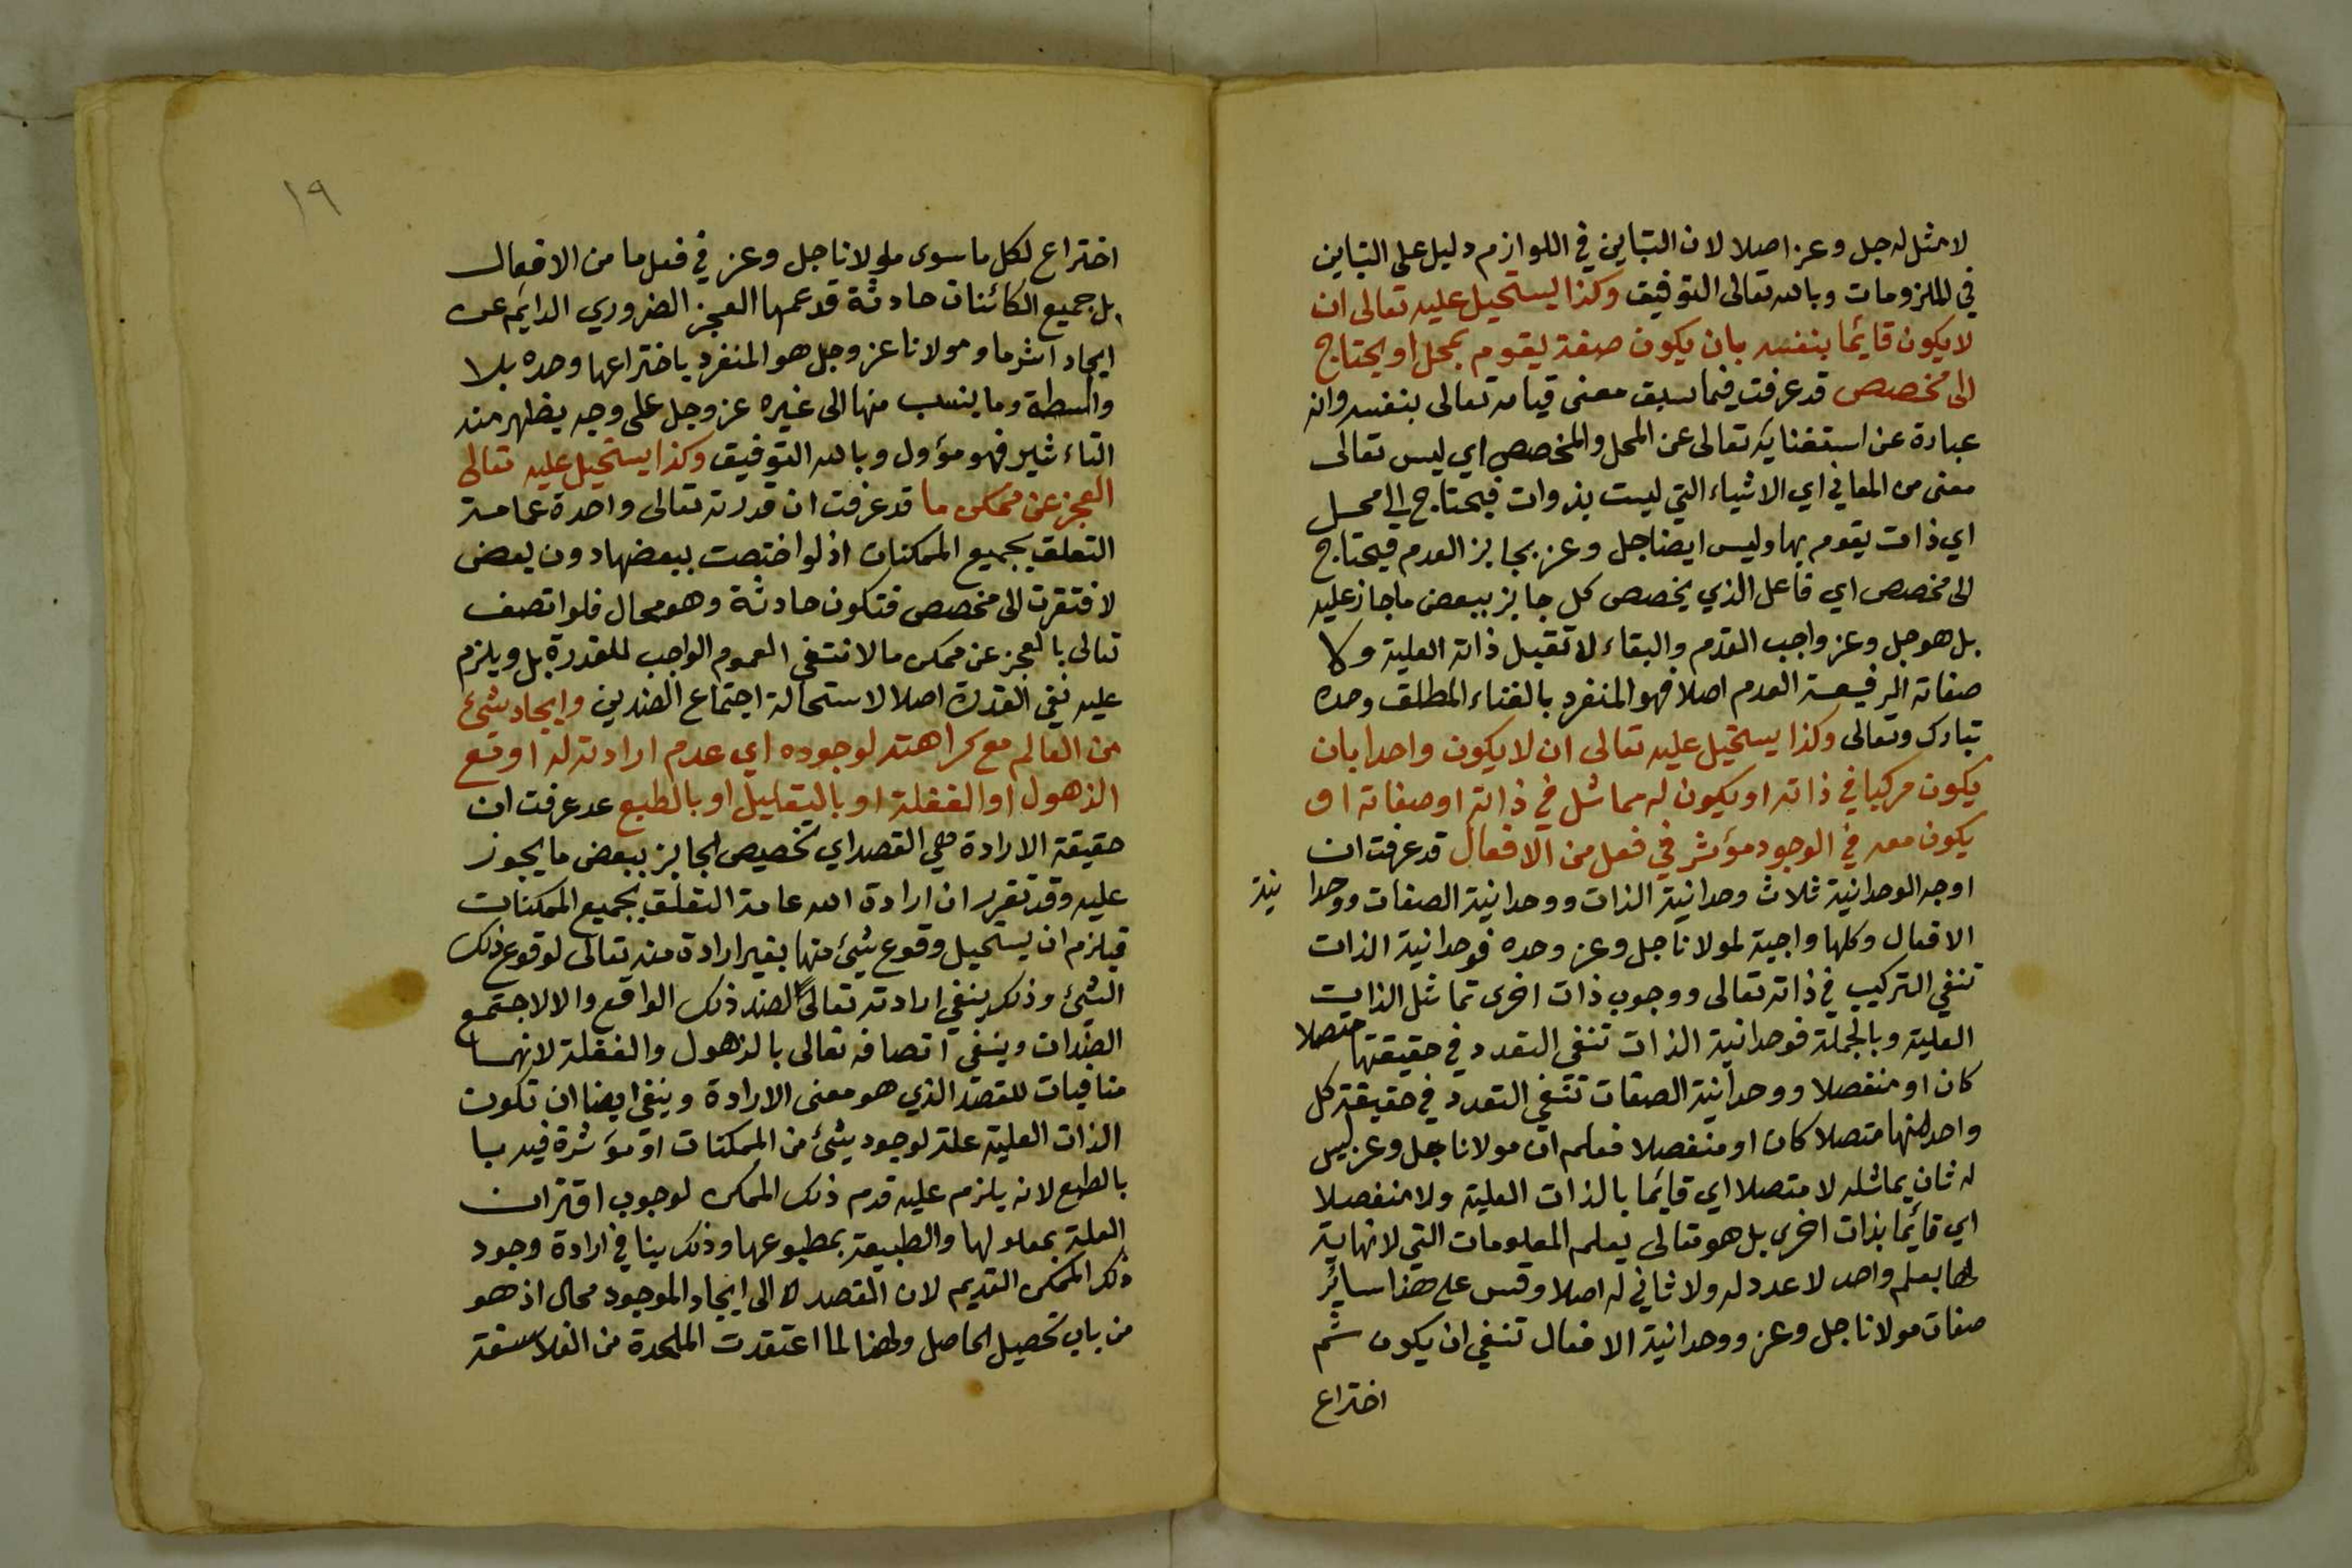 لا مثل له جل وعز اصلا لان التباين في اللوازم دليل على التباين
في الملزومات وبالله تعالى التوفيق وكذا يستحيل عليه تعالى ان
لا يكون قايما بنفسه بان يكون صفة يقوم بمحل او يحتاج
الى مخصص قد عرفت فيما سبق معنى قيامه تعالى بنفسه وانه
عبارة عن استغنايه تعالى عن المحل والمخصص اي ليس تعالى
معنى من المعاني اي الاشياء التي ليست بذوات فيحتاج الى محل
اي ذات يقوم بها وليس ايضا جل وعز بجايز العدم فيحتاج
الى مخصص اي فاعل الذي يخصص كل جايز ببعض ما جاز عليه
بل هو جل وعز واجب القدم والبقاء لا تقبل ذاته العلية ولا
صفاته الرفيعة العدم اصلا فهو المنفرد بالغناء المطلق وحده
تبارك وتعالى وكذا يستحيل عليه تعالى ان لا يكون واحدا بان
يكون مركبا في ذاته او يكون له مماثل في ذاته او صفاته او
يكون معه في الوجود مؤثر في فعل من الافعال قد عرفت ان
اوجه الوحدانية ثلاث وحدانية الذات ووحدانية الصفات ووحدا نية
الافعال وكلها واجبة لمولانا جل وعز وحده فوحدانية الذات
تنفي التركيب في ذاته تعالى ووجوب ذات اخرى تماثل الذات
العلية وبالجملة فوحدانية الذات تنفي التعدد في حقيقتها متصلا
كان او منفصلا ووحدانية الصفات تنفي التعدد في حقيقة كل
واحد منها متصلا كان او منفصلا فعلم ان مولانا جل وعز ليس
له ثان يماثله لا متصلا اي قايما بالذات العلية ولا منفصلا
اي قايما بذات اخرى بل هو تعالى يعلم المعلومات التي لا نهاية
لها بعلم واحد لا عدد له ولا ثاني له اصلا وقس على هذا سائر
صفات مولانا جل وعز ووحدانية الافعال تنفي ان يكون ثم
اختراع
١٩
اختراع لكل ما سوى مولانا جل وعز في فعل ما من الافعال
بل جميع الكائنات حادثة قد عمها العجز الضروري الدايم عن
ايجاد اثر ما ومولانا عز وجل هو المنفرد باختراعها وحده بلا
واسطة وما ينسب منها الى غيره عز وجل على وجه يظهر منه
التاءثير فهو مؤول وبالله التوفيق وكذا يستحيل عليه تعالى
العجز عن ممكن ما قد عرفت ان قدرته تعالى واحدة عامة
التعلق بجميع الممكنات اذ لو اختصت ببعضها دون بعض
لافتقرت الى مخصص فتكون حادثة وهو محال فلو اتصف
تعالى بالعجز عن ممكن ما لانتفى العموم الواجب للقدرة بل ويلزم
عليه نفي القدرة اصلا لاستحالة اجتماع الضدين وايجاد شيئ
من العالم مع كراهته لوجوده اي عدم ارادته له او مع
الذهول او الغفلة او بالتعليل او بالطبع عد عرفت ان
حقيقة الارادة هي القصد اي تخصيص الجايز ببعض ما يجوز
عليه وقد تقرر ان ارادة الله عامة التعلق بجميع الممكنات
فيلزم ان يستحيل وقوع شيئ منها بغير ارادة منه تعالى لوقوع ذلك
الشيئ وذلك ينفي ارادته تعالى لضد ذلك الواقع والا لاجتمع
الضدان وينفي اتصافه تعالى بالذهول والغفلة لانهما
منافيات للقصد الذي هو معنى الارادة وينفي ايضا ان تكون
الذات العلية علة لوجود شيئ من الممكنات او مؤثرة فيه با
بالطبع لانه يلزم عليه قدم ذلك الممكن لوجوب اقتران
العلة بمعلولها والطبيعة بمطبوعها وذلك ينافي ارادة وجود
ذلك الممكن القديم لان القصد الى ايجاد الموجود محال اذ هو
من باب تحصيل الحاصل ولهذا لما اعتقدت الملحدة من الفلاسفة